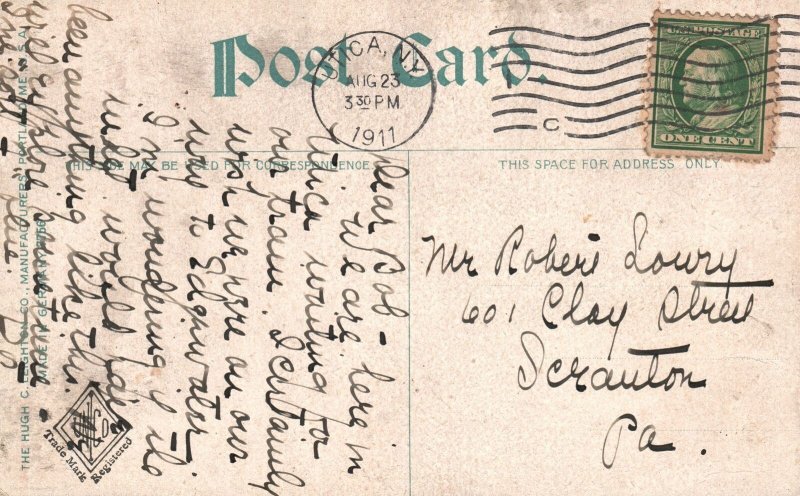 Post Card.
UTICA, N.Y.
AUG 23
3 30 PM
1911
C
U.S. POSTAGE
ONE CENT
THIS SPACE MAY BE USED FOR CORRESPONDENCE
THIS SPACE FOR ADDRESS ONLY.
Dear Bob -
We are here in
Utica waiting for
our train. I certainly
wish we were on our
way to Edgewater.
I am wondering if the
indt would have
been anything like this.
Will explore some time.
Mr Robert Lowry
601 Clay Street
Scranton
Pa.
THE HUGH C. LEIGHTON CO., MANUFACTURERS, PORTLAND, ME., U.S.A.
MADE IN GERMANY
Trade Mark
Registered